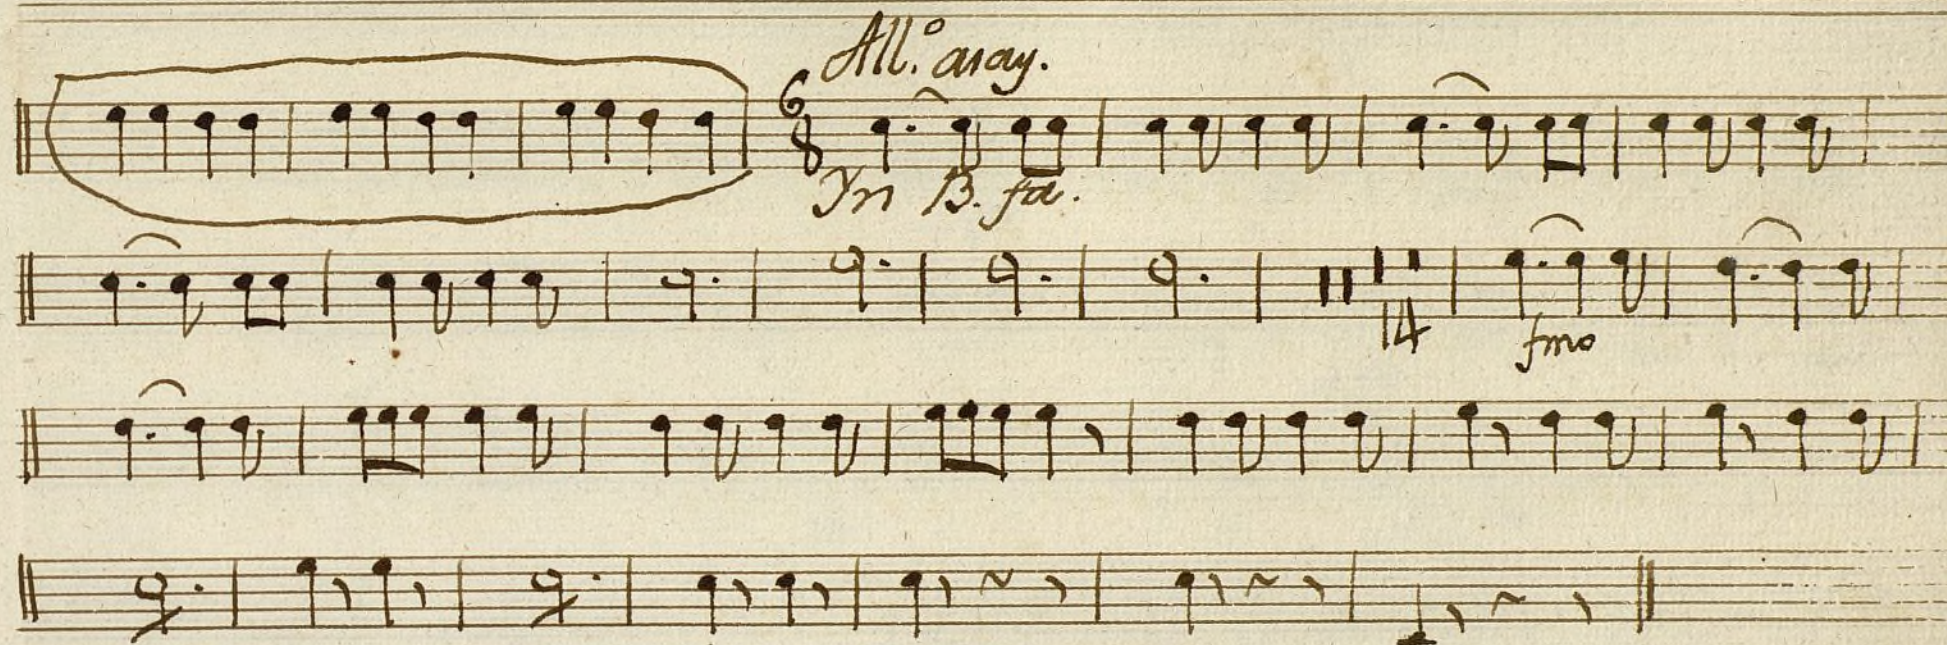 All.º asay.
6
8
Yn B. fa.
14
fmo